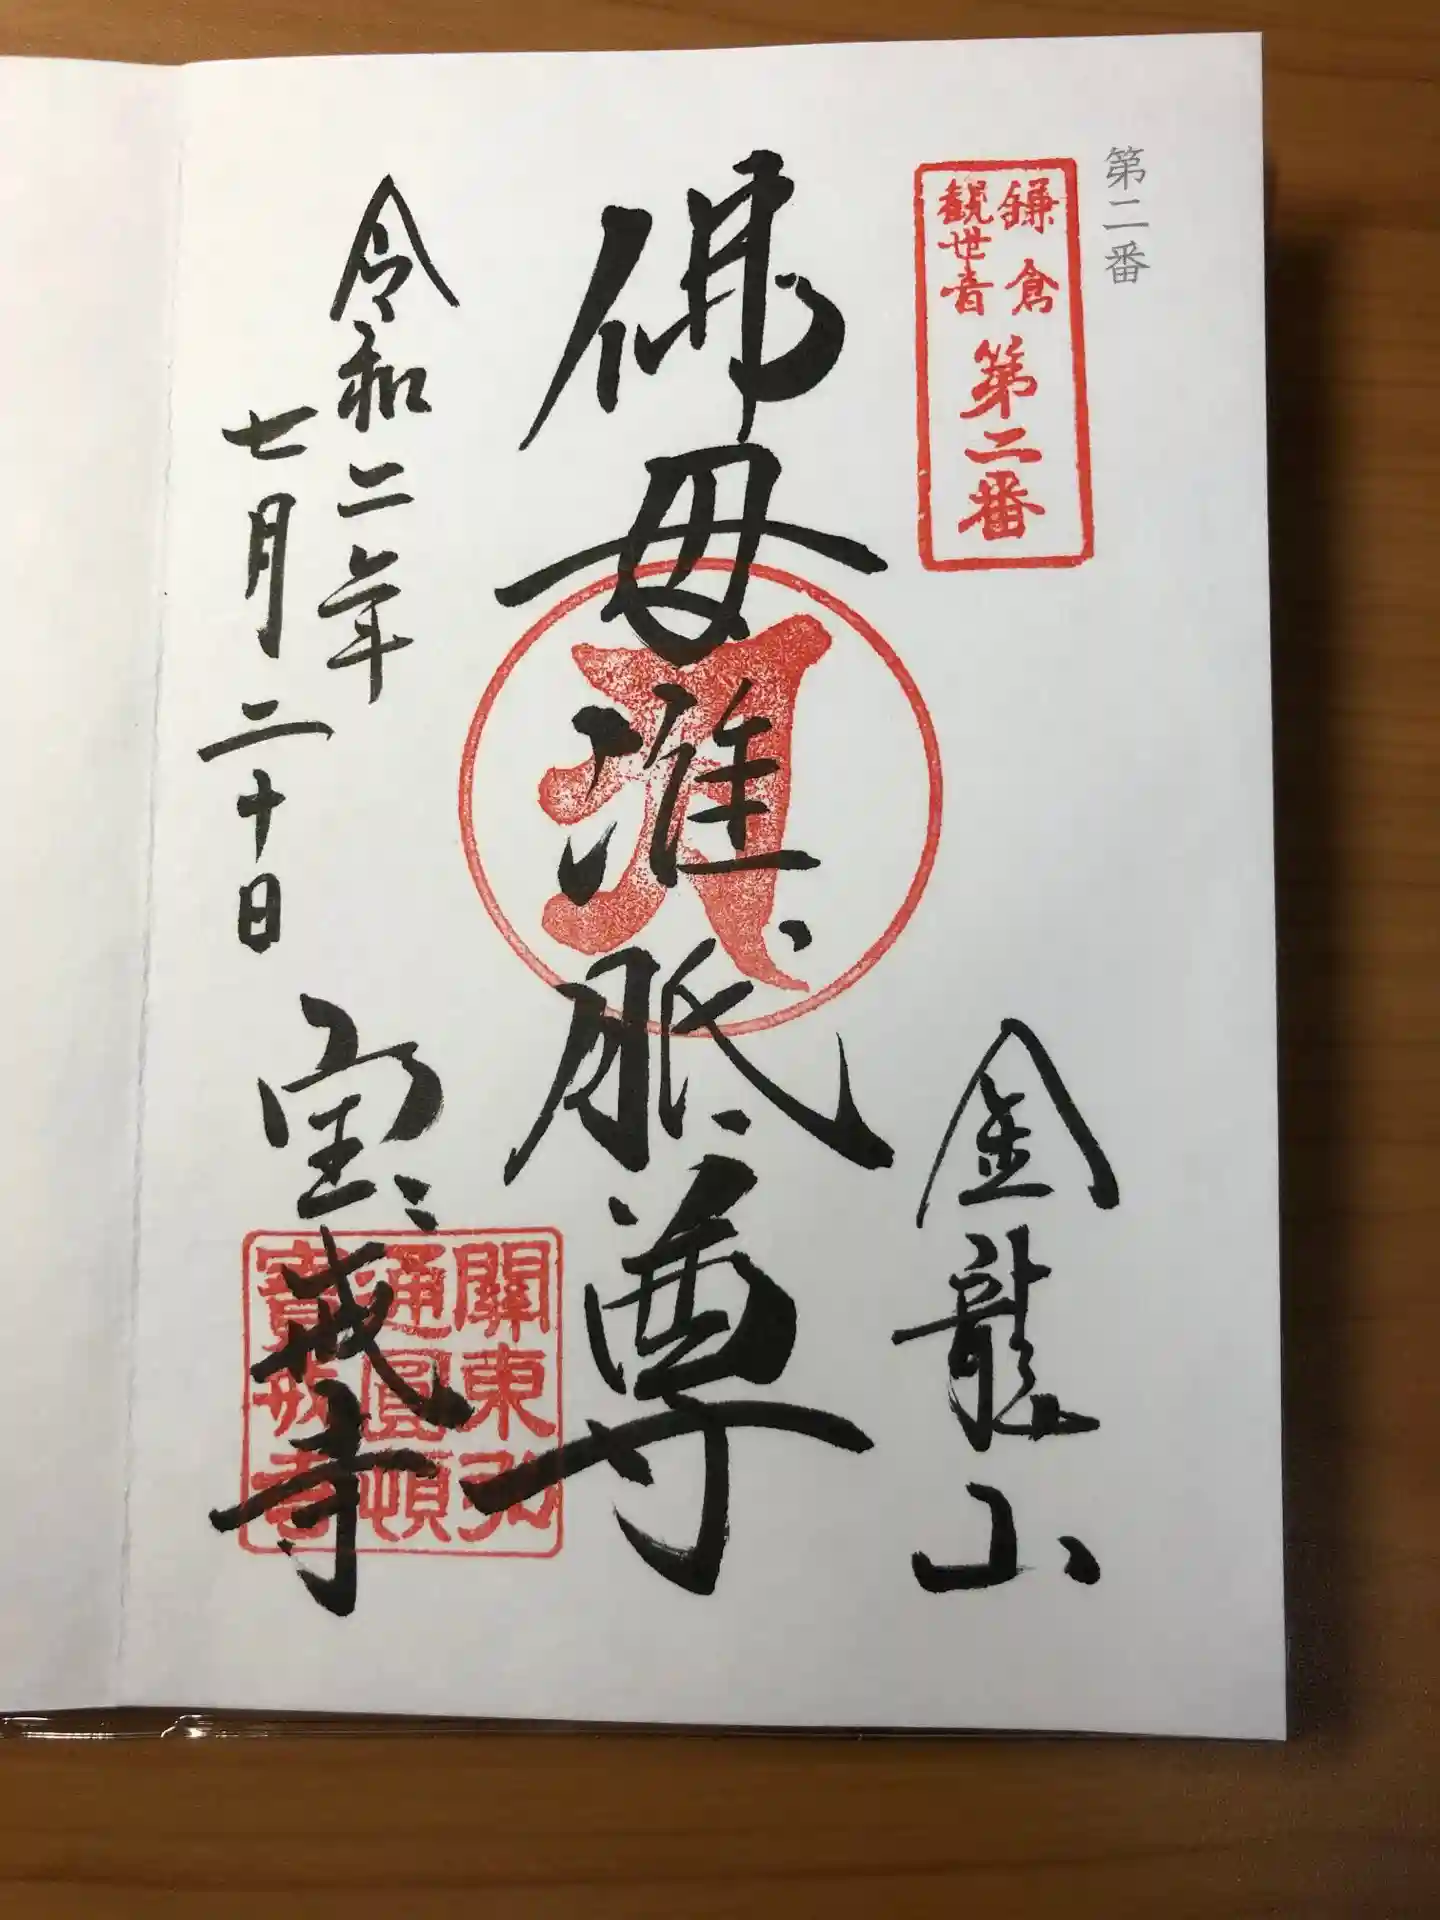 第二番
鎌倉
観世音
第二番
金龍山
佛母准胝尊
令和二年
七月二十日
宝戒寺
關東弘
通圓頓
寶戒寺